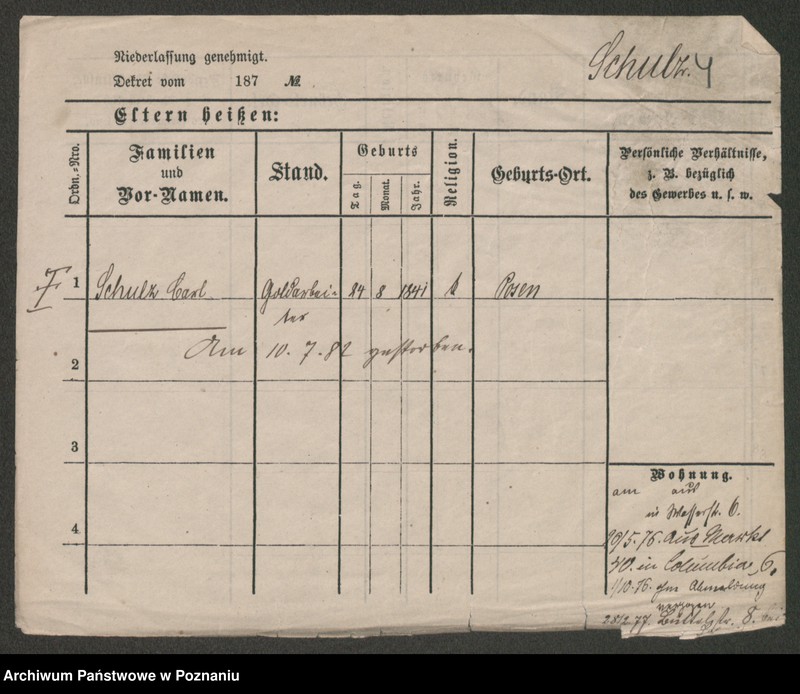 Niederlassung genehmigt.
Dekret vom 187 №
Schulz. 4
Eltern heißen:
Ordn.-Nro.
Familien und Vor-Namen.
Stand.
Geburts
Tag.
Monat.
Jahr.
Religion.
Geburts-Ort.
Persönliche Verhältnisse,
z. B. bezüglich
des Gewerbes u. s. w.
1 Schulz Carl Goldarbei- 24 8 1841 k Posen
ter
Am 10. 7. 82 gestorben.
2
3
4
Wohnung.
am aus
in Wasserstr. 6.
20/5.76. aus Markt
40. in Columbia 6.
1/10.76. ohne Abmeldung
verzogen
28/2 77. Büttelstr. 8. bei
Archiwum Państwowe w Poznaniu